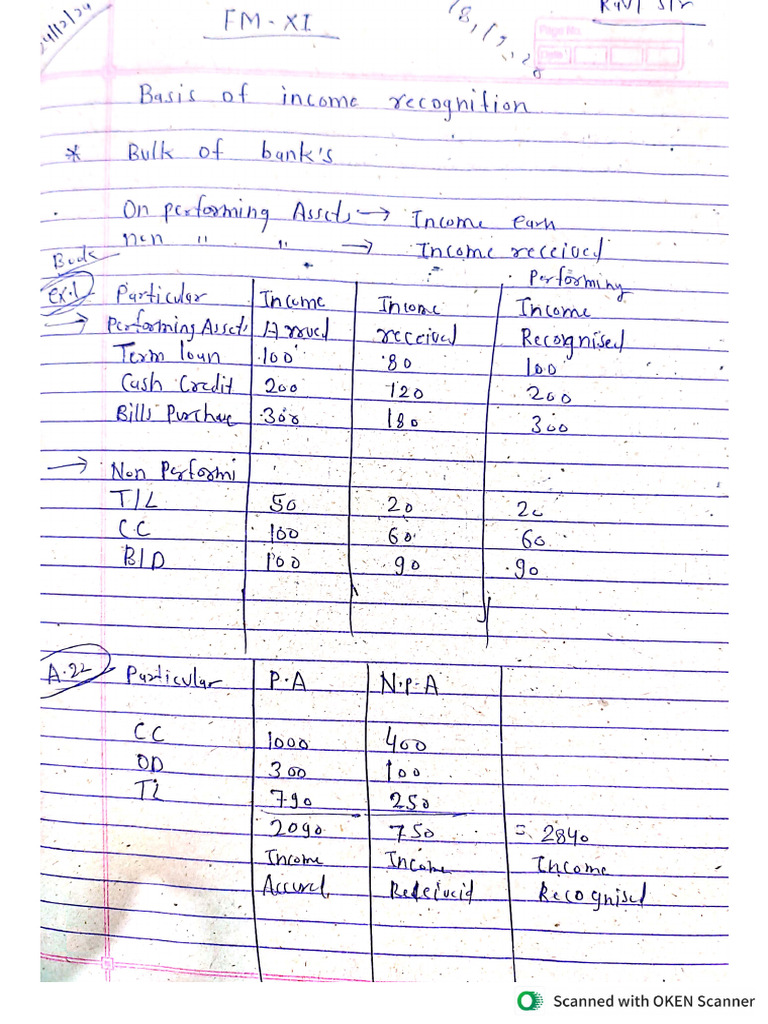 24/12/24
FM-XI
18,19,20
Ravi Sir
Page No.
Date
Basis of income recognition
* Bulk of bank's
. On performing Assets → Income earn
non " " → Income received
Book
Ex.1 Particular Income Income Performing Income
→ Performing Assets Arrued received Recognised
Term loan 100 80 100
Cash Credit 200 120 200
Bills Purchase 300 180 300
→ Non Performi
T/L 50 20 20
CC 100 60 60
B/D 100 90 90
A.22 Particular P.A N.P.A
CC 1000 400
OD 300 100
TL 790 250
2090 750 = 2840
Income Income Income
Accured Received Recognised
Scanned with OKEN Scanner